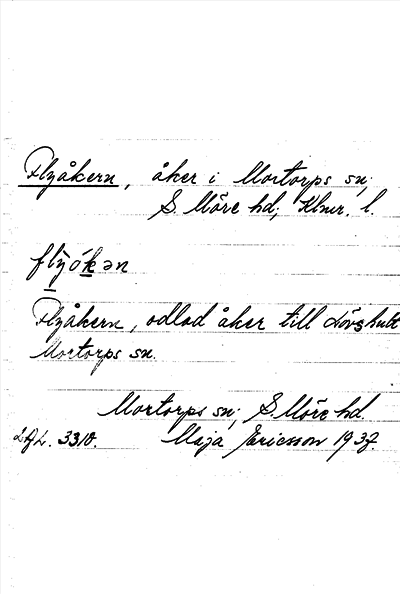 Flyåkern, åker i Mortorps sn;
S. Möre hd; Klmr. l.
flỳókən
Flyåkern, odlad åker till Lövshult
Mortorps sn.
Mortorps sn; S. Möre hd
LAL. 3310. Maja Ericsson 1937.